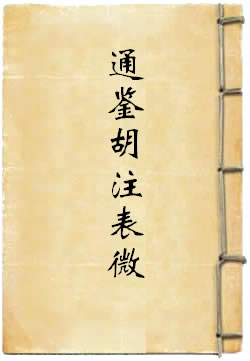 通鉴胡注表微